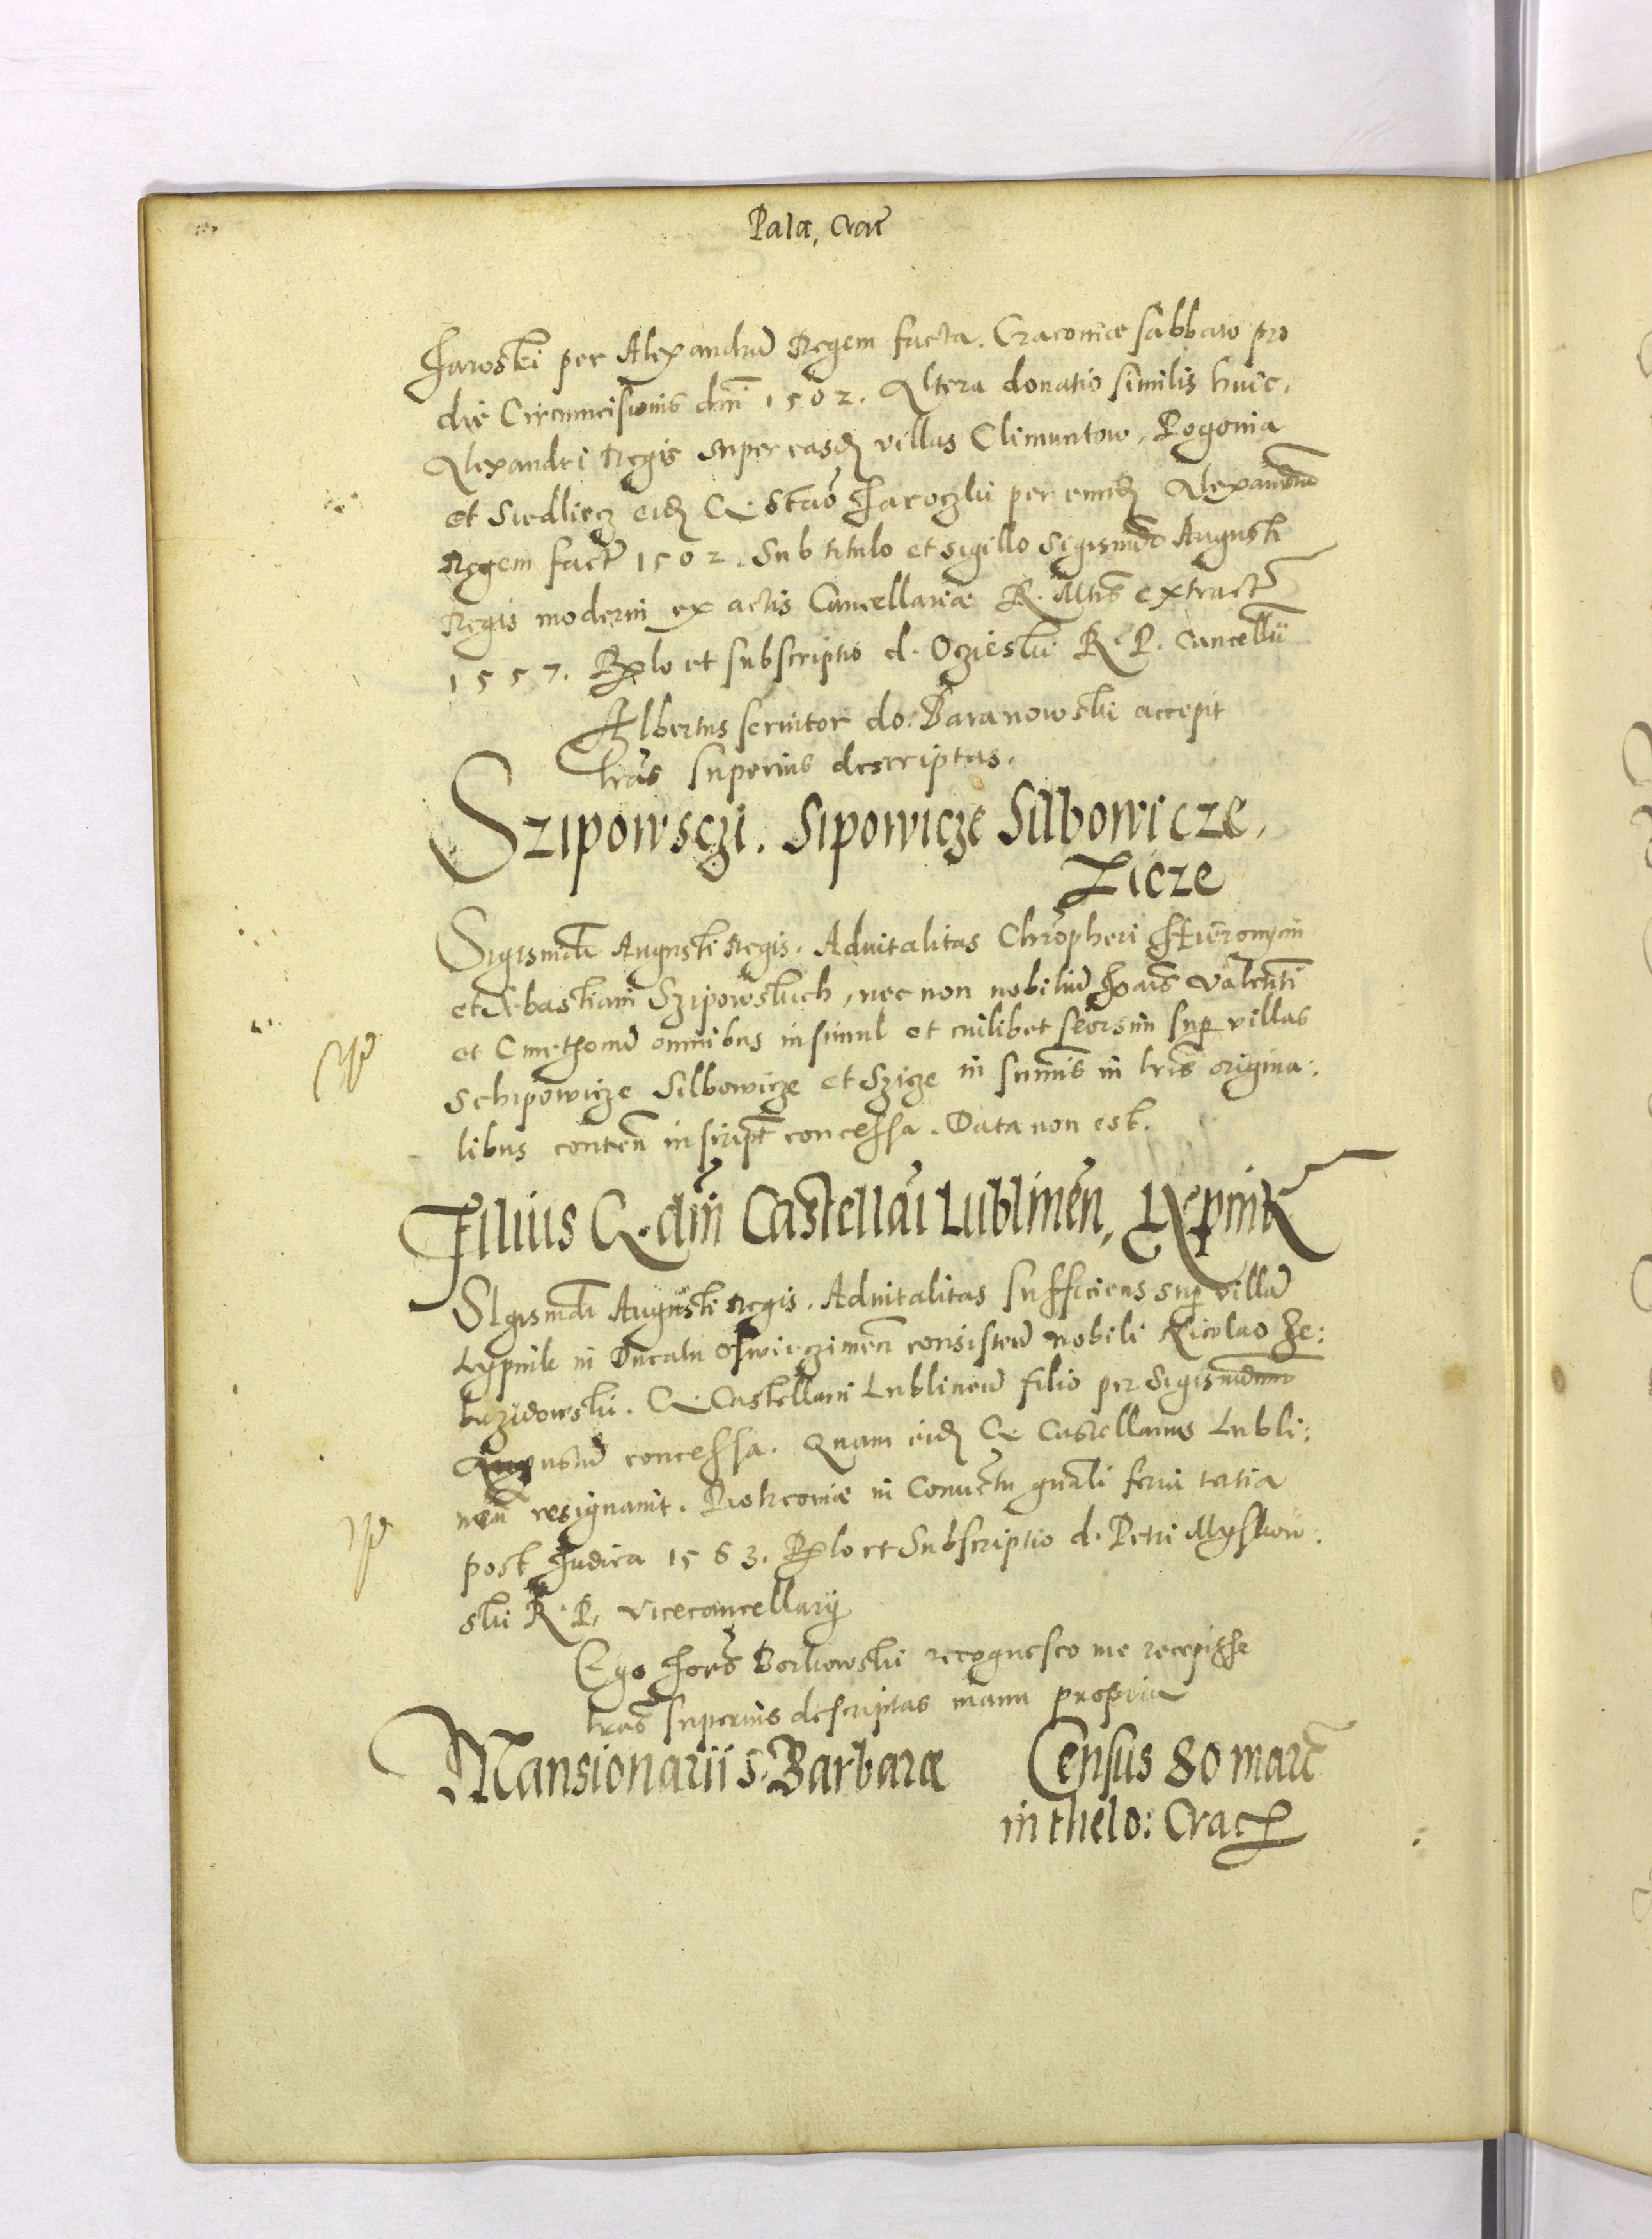 Pala, Crac̃
Jaroski per Alexandrũ Regem facta. Cracoviæ sabbato pro
die Circumcisionis dm̃ 1502. Altera donatio similis huic,
Alexandri Regis super easdẽ villas Climuntow, Pogonia
et Siedliecz eidẽ G. Stão Jaroczki per eundẽ Alexandrũ
Regem fact̃ 1502. Sub titulo et sigillo Sigismũdi Augusti
Regis moderni ex actis Cancellariæ R. Mtis extract̃
1557. Rx̃lo et subscriptio d. Oczieski R. P. Cancellrii
Albertus servitor do: Baranowski accepit
lrãs superius descriptas.
Szipowsczi. Sipowicze Silbowicze,
Zicze
Sigismũdi Augusti Regis. Advitalitas Chrõpheri Hieronymi
et Sebastiani Szipowskich, nec non nobiliũ Joãis Valentĩ
et Cmethonũ omnibus insimul et cuilibet seorsim sup villas
Schipowicze Silbowicze et Szicze in summis in lrĩs origina:
libus conteñ inscript̃ concessa. Data non est.
Filius G. dm̃i Castellãi Lublineñ, Lypnik
Sigismũdi Augusti Regis. Advitalitas sufficiens sup villã
Lypnik in Ducatu Oswieczimeñ consisteñ nobili Nicolao Ze:
brzidowski. G. Castellani Lublineñ filio per Sigismũdum
Augustũ concessa. Quam eidẽ G. Castellanus Lubli:
neñ resignavit. Piotrcoviæ in Conventu gnãli feria tertia
post Judica 1563. Rx̃lo et Subscriptio d. Petri Myskow:
ski R. P. vicecancellarij
Ego Joẽs Borkowski recognosco me recepisse
lrãs superius descriptas manu propria
Mansionarii S. Barbaræ Census 80 marc̃
in thelo: Crac